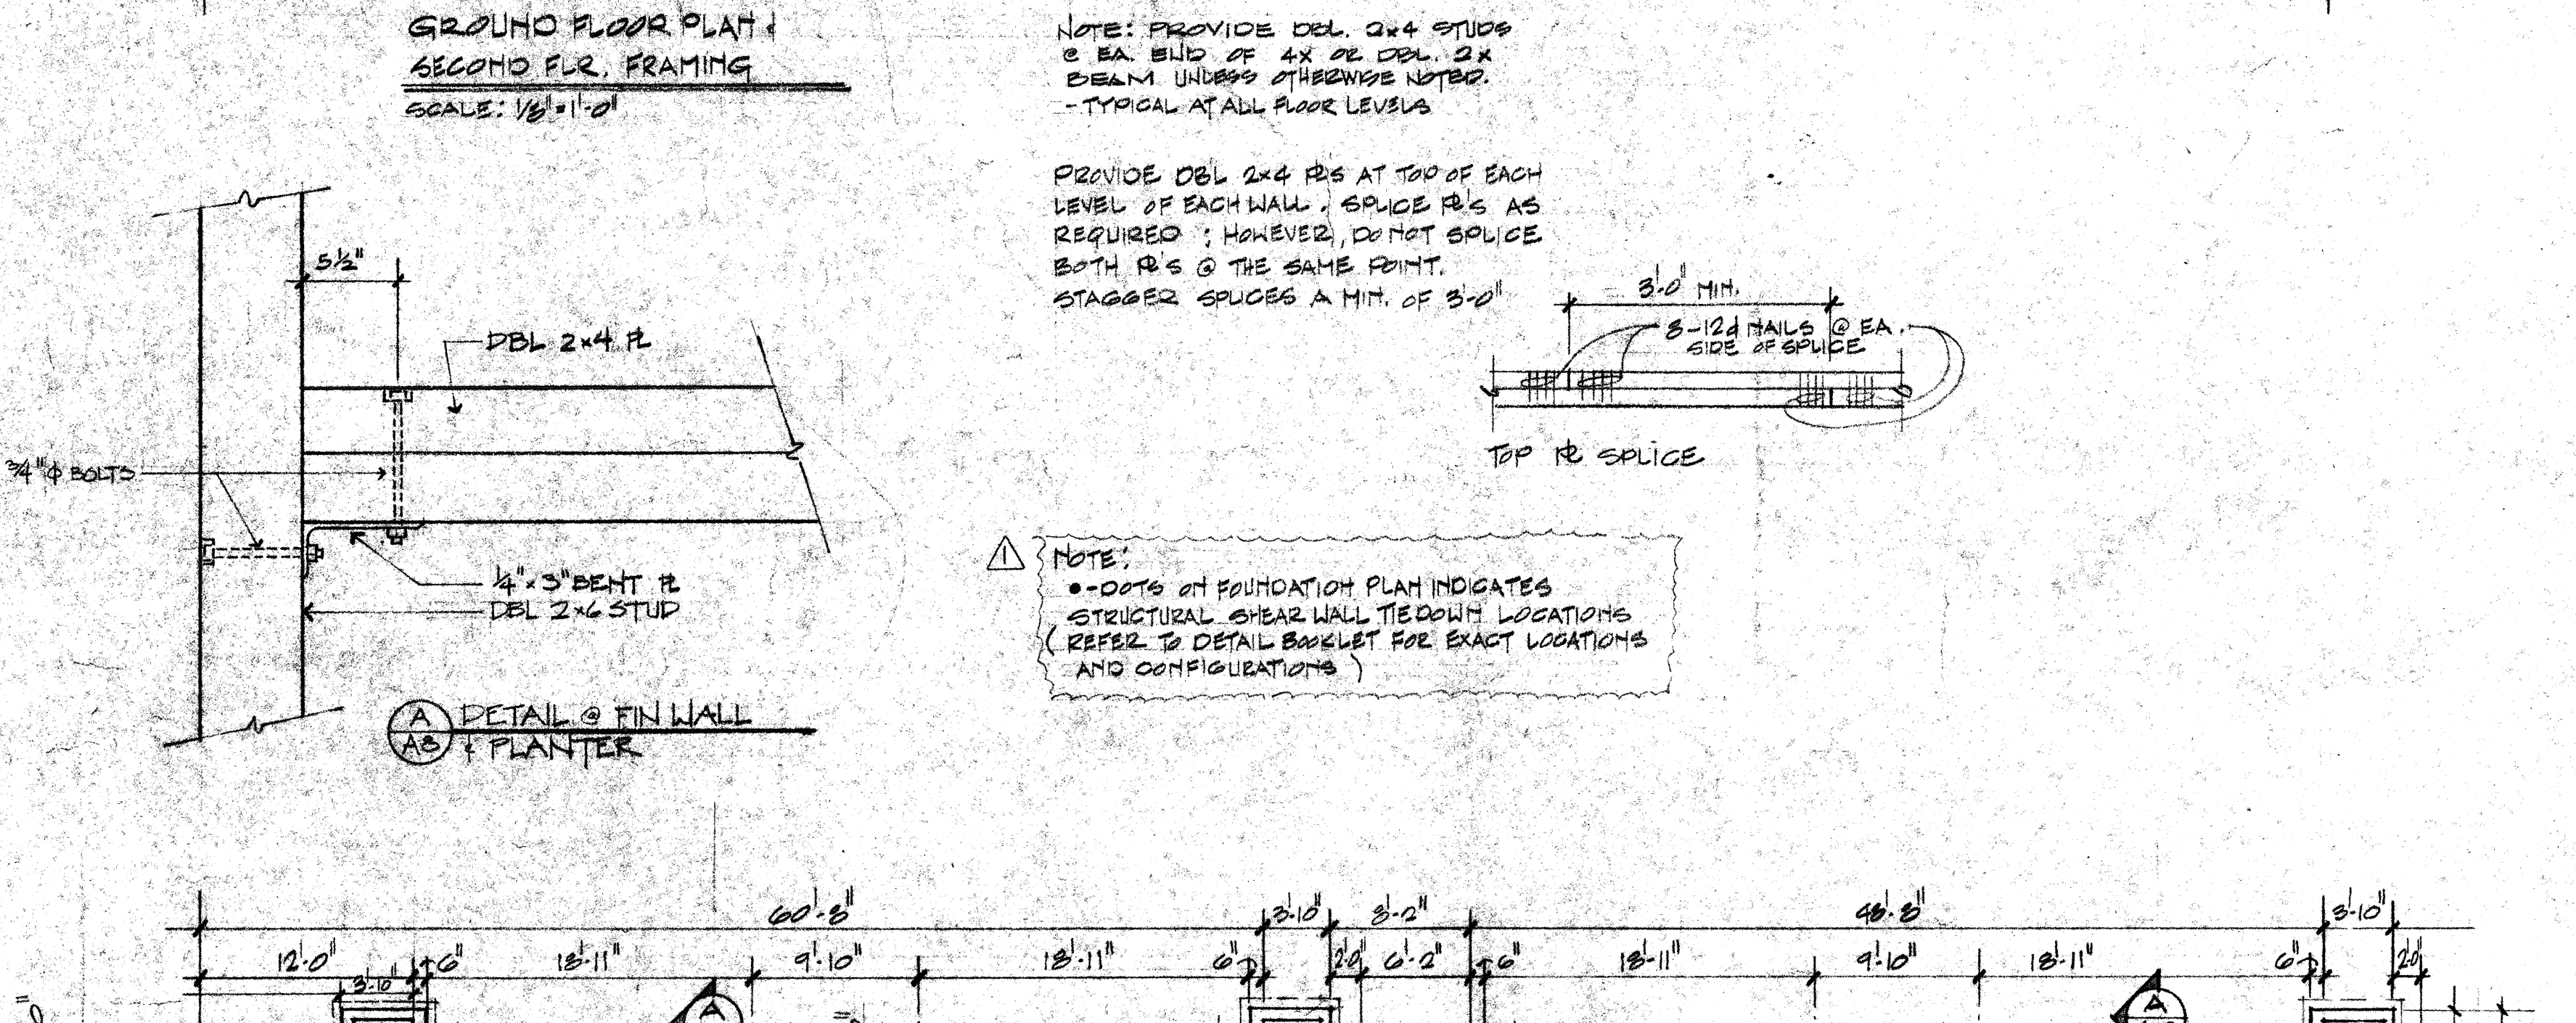 GROUND FLOOR PLAN &
SECOND FLR. FRAMING
SCALE: 1/8"=1'-0"
NOTE: PROVIDE DBL. 2x4 STUDS
@ EA. END OF 4x OR DBL. 2x
BEAM UNLESS OTHERWISE NOTED.
- TYPICAL AT ALL FLOOR LEVELS
PROVIDE DBL 2x4 PL'S AT TOP OF EACH
LEVEL OF EACH WALL. SPLICE PL'S AS
REQUIRED ; HOWEVER, DO NOT SPLICE
BOTH PL'S @ THE SAME POINT.
STAGGER SPLICES A MIN. OF 3'-0"
5½"
DBL 2x4 PL
3/4"ϕ BOLTS
¼"x3" BENT PL
DBL 2x6 STUD
A
A8
DETAIL @ FIN WALL
& PLANTER
3'-0" MIN.
8-12d NAILS @ EA.
SIDE OF SPLICE
TOP PL SPLICE
1
NOTE:
•-DOTS ON FOUNDATION PLAN INDICATES
STRUCTURAL SHEAR WALL TIEDOWN LOCATIONS
( REFER TO DETAIL BOOKLET FOR EXACT LOCATIONS
AND CONFIGURATIONS )
60'-8" 3'-10" 8'-2" 48'-8" 3'-10"
12'-0" 6" 18'-11" 9'-10" 18'-11" 6" 2'-0" 6'-2" 6" 18'-11" 9'-10" 18'-11" 6" 2'-0"
3'-10"
A
A